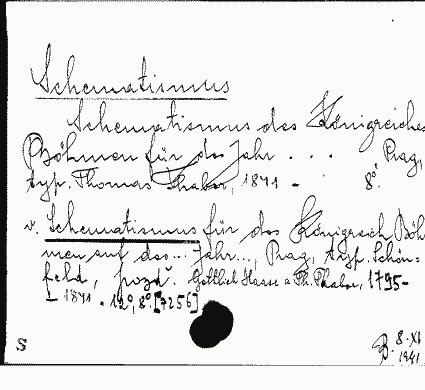 Schematismus
Schematismus des Königreiches
Böhmen für das Jahr . . . Prag,
typ. Thomas Thabor, 1841 - 8°.
v. Schematismus für das Königreich Böh
men auf das ... Jahr ..., Prag, typ. Schön=
feld, pozd. Gottlieb Haase a Th. Thabor, 1795-
- 1841 . 12°, 8° [7256]
S
8-XI
1941